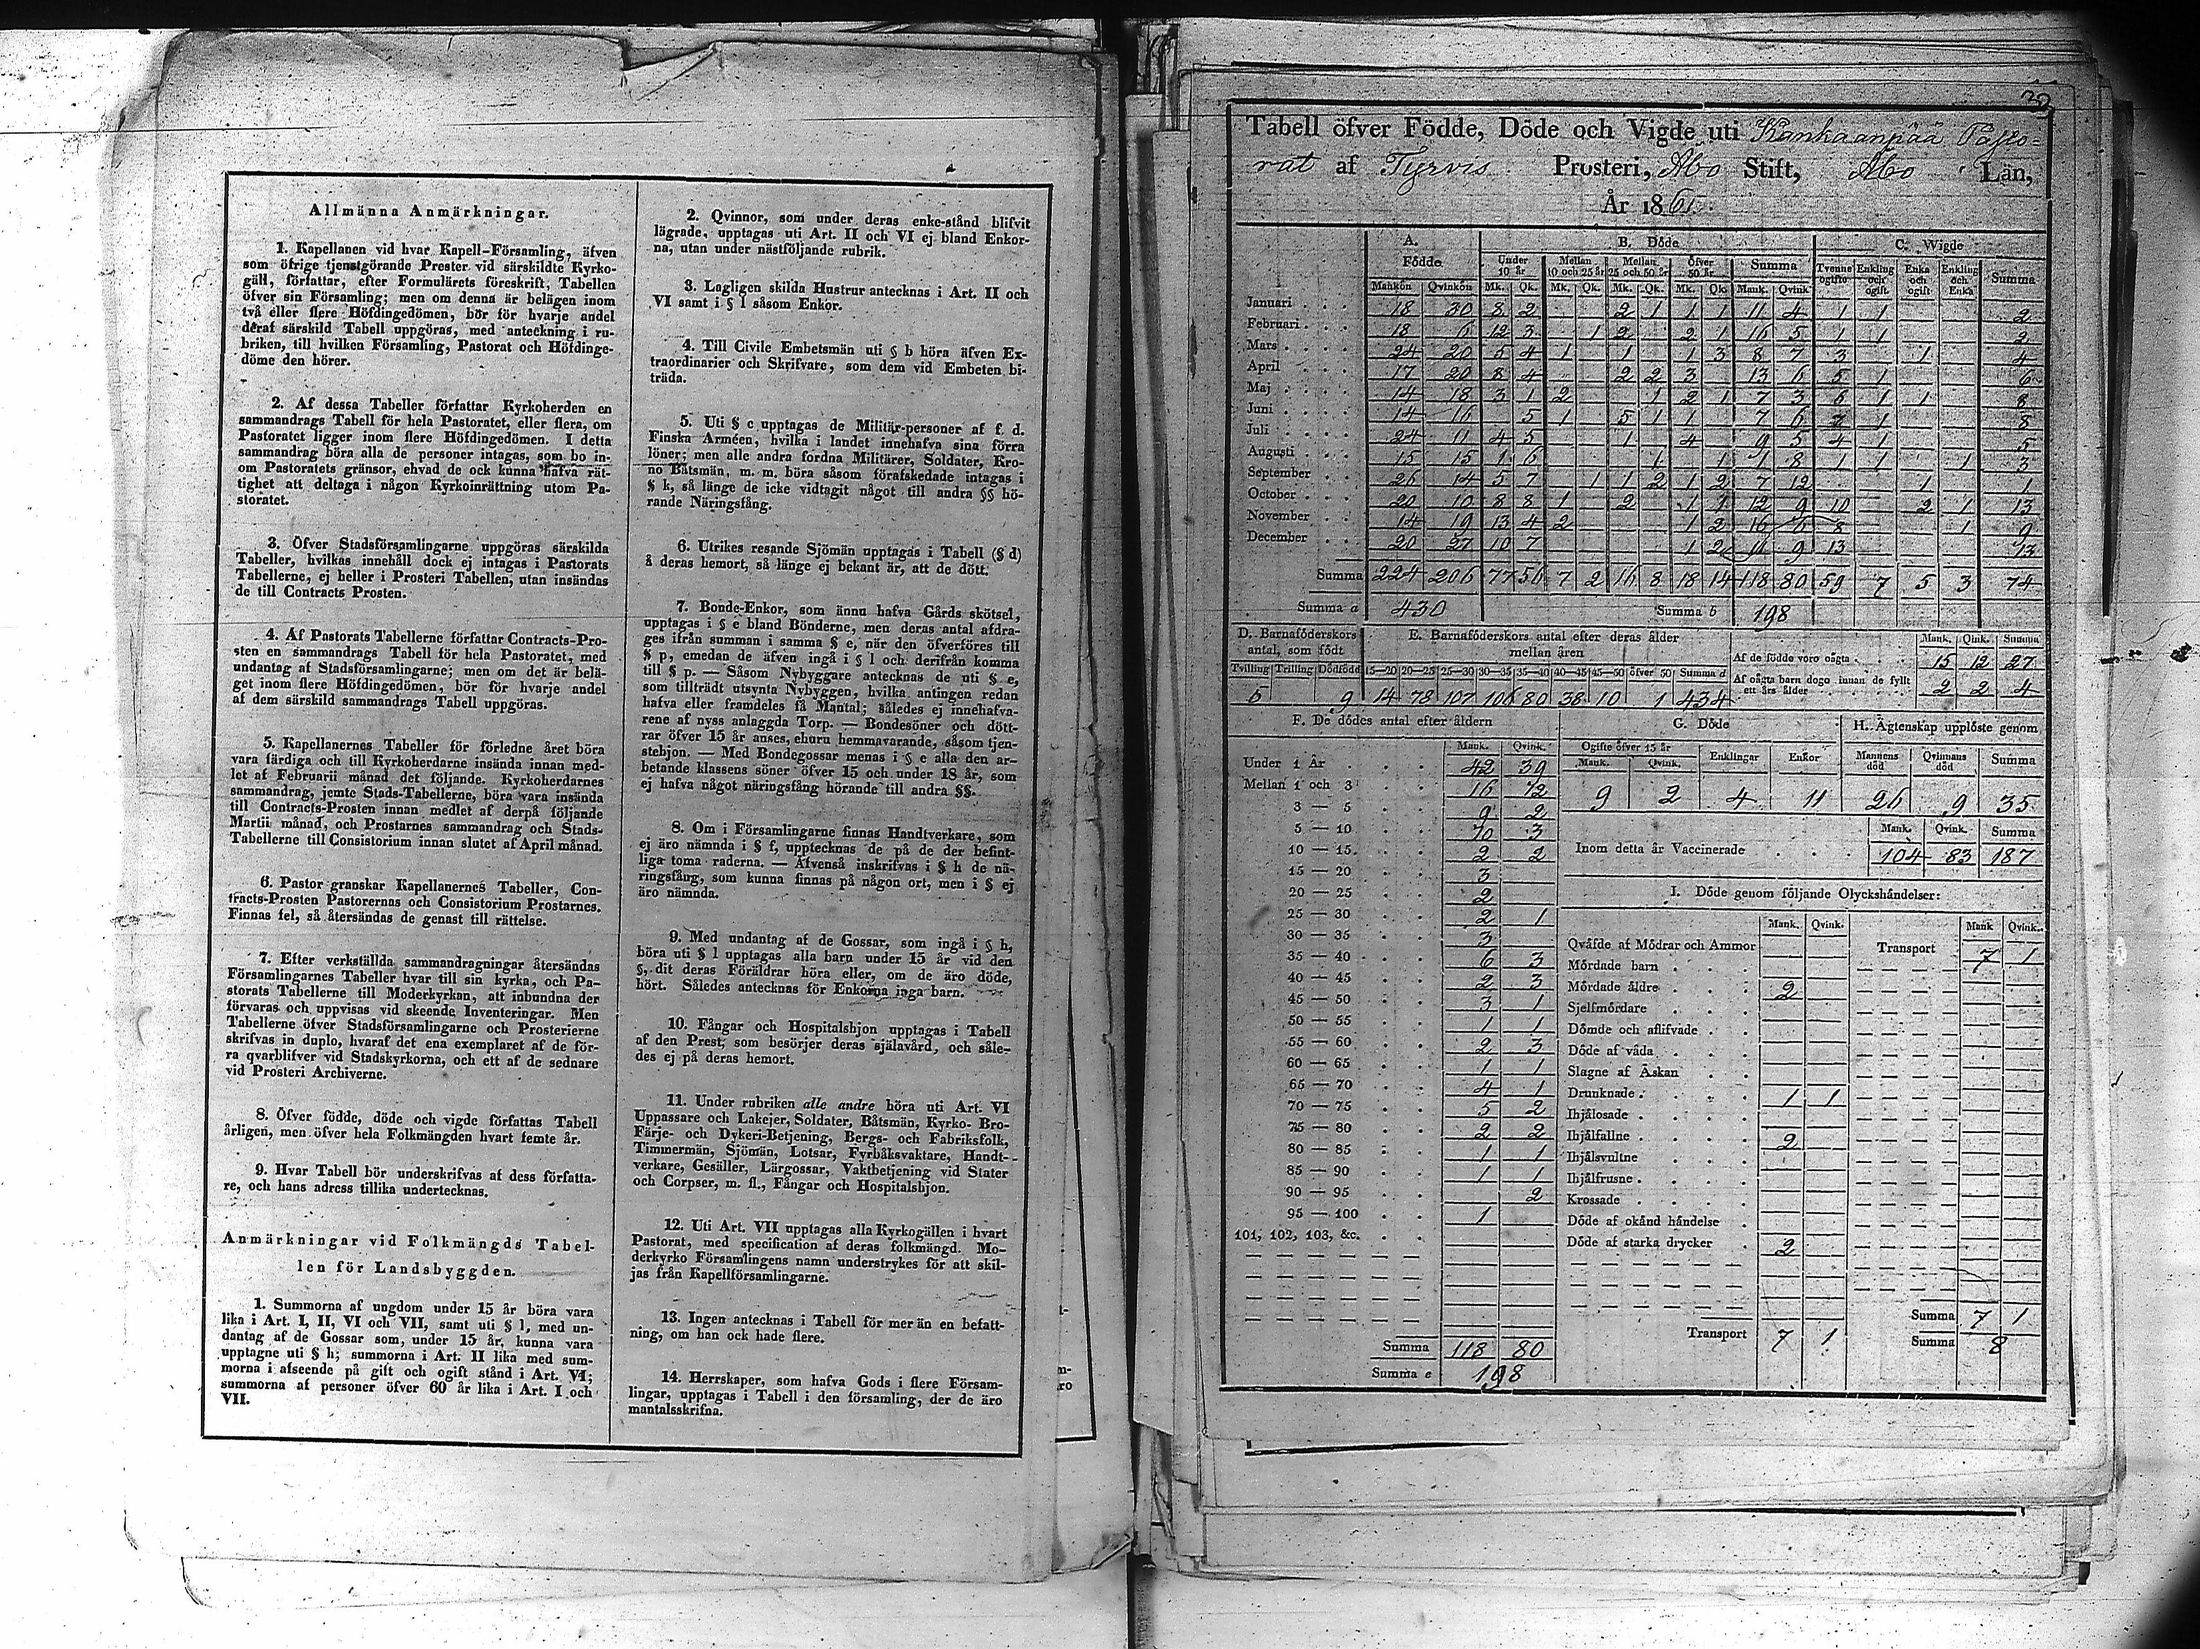 Allmänna Anmärkningar.
1. Kapellanen vid hvar Kapell-Församling, äfven
som öfrige tjenstgörande Prester vid särskildte Kyrko-
gäll, författar, efter Formulärets föreskrift, Tabellen
öfver sin Församling; men om denna är belägen inom
två eller flere Höfdingedömen, bör för hvarje andel
deraf särskild Tabell uppgöras, med anteckning i ru-
briken, till hvilken Församling, Pastorat och Höfdinge-
döme den hörer.
2. Af dessa Tabeller författar Kyrkoherden en
sammandrags Tabell för hela Pastoratet, eller flera, om
Pastoratet ligger inom flere Höfdingedömen. I detta
sammandrag böra alla de personer intagas, som bo in-
om Pastoratets gränsor, ehvad de ock kunna hafva rät-
tighet att deltaga i någon Kyrkoinrättning utom Pa-
storatet.
3. Öfver Stadsförsamlingarne uppgöras särskilda
Tabeller, hvilkas innehåll dock ej intagas i Pastorats
Tabellerne, ej heller i Prosteri Tabellen, utan insändas
de till Contracts Prosten.
4. Af Pastorats Tabellerne författar Contracts-Pro-
sten en sammandrags Tabell för hela Pastoratet, med
undantag af Stadsförsamlingarne; men om det är belä-
get inom flere Höfdingedömen, bör för hvarje andel
af dem särskild sammandrags Tabell uppgöras.
5. Kapellanernes Tabeller för förledne året böra
vara färdiga och till Kyrkoherdarne insända innan med-
let af Februarii månad det följande. Kyrkoherdarnes
sammandrag, jemte Stads-Tabellerne, böra vara insända
till Contracts-Prosten innan medlet af derpå följande
Martii månad, och Prostarnes sammandrag och Stads-
Tabellerne till Consistorium innan slutet af April månad.
6. Pastor granskar Kapellanernes Tabeller, Con-
tracts-Prosten Pastorernas och Consistorium Prostarnes.
Finnas fel, så återsändas de genast till rättelse.
7. Efter verkställda sammandragningar återsändas
Församlingarnes Tabeller hvar till sin kyrka, och Pa-
storats Tabellerne till Moderkyrkan, att inbundna der
förvaras och uppvisas vid skeende Inventeringar. Men
Tabellerne öfver Stadsförsamlingarne och Prosterierne
skrifvas in duplo, hvaraf det ena exemplaret af de för-
ra qvarblifver vid Stadskyrkorna, och ett af de sednare
vid Prosteri Archiverne.
8. Öfver födde, döde och vigde författas Tabell
årligen, men öfver hela Folkmängden hvart femte år.
9. Hvar Tabell bör underskrifvas af dess författa-
re, och hans adress tillika undertecknas.
Anmärkningar vid Folkmängds Tabel-
len för Landsbyggden.
1. Summorna af ungdom under 15 år böra vara
lika i Art. I, II, VI och VII, samt uti § l, med un-
dantag af de Gossar som, under 15 år, kunna vara
upptagne uti § h; summorna i Art. II lika med sum-
morna i afseende på gift och ogift stånd i Art. VI;
summorna af personer öfver 60 år lika i Art. I och
VII.
2. Qvinnor, som under deras enke-stånd blifvit
lägrade, upptagas uti Art. II och VI ej bland Enkor-
na, utan under nästföljande rubrik.
3. Lagligen skilda Hustrur antecknas i Art. II och
VI samt i § l såsom Enkor.
4. Till Civile Embetsmän uti § b höra äfven Ex-
traordinarier och Skrifvare, som dem vid Embeten bi-
träda.
5. Uti § c upptagas de Militär-personer af f. d.
Finska Arméen, hvilka i landet innehafva sina förra
löner; men alle andra fordna Militärer, Soldater, Kro-
no Båtsmän, m. m. böra såsom förafskedade intagas i
§ k, så länge de icke vidtagit något till andra §§ hö-
rande Näringsfång.
6. Utrikes resande Sjömän upptagas i Tabell (§ d)
å deras hemort, så länge ej bekant är, att de dött.
7. Bonde-Enkor, som ännu hafva Gårds skötsel,
upptagas i § e bland Bönderne, men deras antal afdra-
ges ifrån summan i samma § e, när den öfverföres till
§ p, emedan de äfven ingå i § l och derifrån komma
till § p. — Såsom Nybyggare antecknas de uti § e,
som tillträdt utsynta Nybyggen, hvilka antingen redan
hafva eller framdeles få Mantal; således ej innehafva-
rene af nyss anlaggda Torp. — Bondesöner och dött-
rar öfver 15 år anses, ehuru hemmavarande, såsom tjen-
stehjon. — Med Bondegossar menas i § e alla den ar-
betande klassens söner öfver 15 och under 18 år, som
ej hafva något näringsfång hörande till andra §§.
8. Om i Församlingarne finnas Handtverkare, som
ej äro nämnda i § f, upptecknas de på de der befint-
liga toma raderna. — Äfvenså inskrifvas i § h de nä-
ringsfång, som kunna finnas på någon ort, men i § ej
äro nämnda.
9. Med undantag af de Gossar, som ingå i § h,
böra uti § l upptagas alla barn under 15 år vid den
§, dit deras Föräldrar höra eller, om de äro döde,
hört. Således antecknas för Enkorna inga barn.
10. Fångar och Hospitalshjon upptagas i Tabell
af den Prest, som besörjer deras själavård, och såle-
des ej på deras hemort.
11. Under rubriken alle andre höra uti Art. VI
Uppassare och Lakejer, Soldater, Båtsmän, Kyrko- Bro-
Färje- och Dykeri-Betjening, Bergs- och Fabriksfolk,
Timmermän, Sjömän, Lotsar, Fyrbåksvaktare, Handt-
verkare, Gesäller, Lärgossar, Vaktbetjening vid Slater
och Corpser, m. fl., Fångar och Hospitalshjon.
12. Uti Art. VII upptagas alla Kyrkogällen i hvart
Pastorat, med specification af deras folkmängd. Mo-
derkyrko Församlingens namn understrykes för att skil-
jas från Kapellförsamlingarne.
13. Ingen antecknas i Tabell för mer än en befatt-
ning, om han ock hade flere.
14. Herrskaper, som hafva Gods i flere Försam-
lingar, upptagas i Tabell i den församling, der de äro
mantalsskrifna.
Tabell öfver Födde, Döde och Vigde uti Kankaanpää Pasto-
rat af Tyrvis Prosteri, Åbo Stift, Åbo Län,
År 1861
A. Födde. B. Döde C. Wigde
Under 10 år Mellan 10 och 25 år Mellan 25 och 50 år Öfver 50 år Summa Tvenne ogifte Enkling och ogift Enka och ogift Enkling och Enka Summa
Mankön Qvinkön Mk. Qk. Mk. Qk. Mk. Qk. Mk. Qk. Mank. Qvink.
Januari 18 30 8 2 2 1 1 1 11 4 1 1 2
Februari 18 6 12 3 1 2 2 1 16 5 1 1 2
Mars 24 20 5 4 1 1 1 3 8 7 3 1 4
April 17 20 8 4 2 2 3 13 6 5 1 6
Maj 14 18 3 1 2 1 2 1 7 3 6 1 1 8
Juni 14 16 5 1 5 1 1 7 6 7 1 8
Juli 24 11 4 5 1 4 9 5 4 1 5
Augusti 15 15 1 6 1 1 1 8 1 1 1 3
September 26 14 5 7 1 1 2 1 2 7 12 1 1
October 20 10 8 8 1 2 1 1 12 9 10 2 1 13
November 14 19 13 4 2 1 2 16 6 8 1 9
December 20 27 10 7 1 2 11 9 13 13
Summa 224 206 77 56 7 2 16 8 18 14 118 80 59 7 5 3 74
Summa a 430 Summa b 198
D. Barnaföderskors antal, som födt E. Barnaföderskors antal efter deras ålder mellan åren
Tvilling Trilling Dödfödd 15—20 20—25 25—30 30—35 35—40 40—45 45—50 öfver 50 Summa d
5 9 14 78 107 106 80 38 10 1 434
Mank. Qink. Summa
Af de födde voro oägta 15 12 27
Af oägta barn dogo innan de fyllt ett års ålder 2 2 4
F. De dödes antal efter åldern
Mank. Qvink.
Under 1 År 42 39
Mellan 1 och 3 16 12
3 — 5 9 2
5 — 10 10 3
10 — 15 2 2
15 — 20 3
20 — 25 2
25 — 30 2 1
30 — 35 3
35 — 40 6 3
40 — 45 2 3
45 — 50 3 1
50 — 55 1 1
55 — 60 2 3
60 — 65 1 1
65 — 70 4 1
70 — 75 5 2
75 — 80 2 2
80 — 85 1 1
85 — 90 1 1
90 — 95 2
95 — 100 1
101, 102, 103, &c.
Summa 118 80
Summa e 198
G. Döde H. Ägtenskap upplöste genom
Ogifte öfver 15 år Enklingar Enkor Mannens död Qvinnans död Summa
Mank. Qvink.
9 2 4 11 26 9 35
Mank. Qvink. Summa
Inom detta år Vaccinerade 104 83 187
I. Döde genom följande Olyckshändelser:
Mank. Qvink. Mank Qvink.
Qväfde af Mödrar och Ammor Transport 7 1
Mördade barn
Mördade äldre 2
Sjelfmördare
Dömde och aflifvade
Döde af våda
Slagne af Åskan
Drunknade 1 1
Ihjälosade
Ihjälfallne 2
Ihjälsvultne
Ihjälfrusne
Krossade
Döde af okänd händelse
Döde af starka drycker 2
Summa 7 1
Transport 7 1 Summa 8